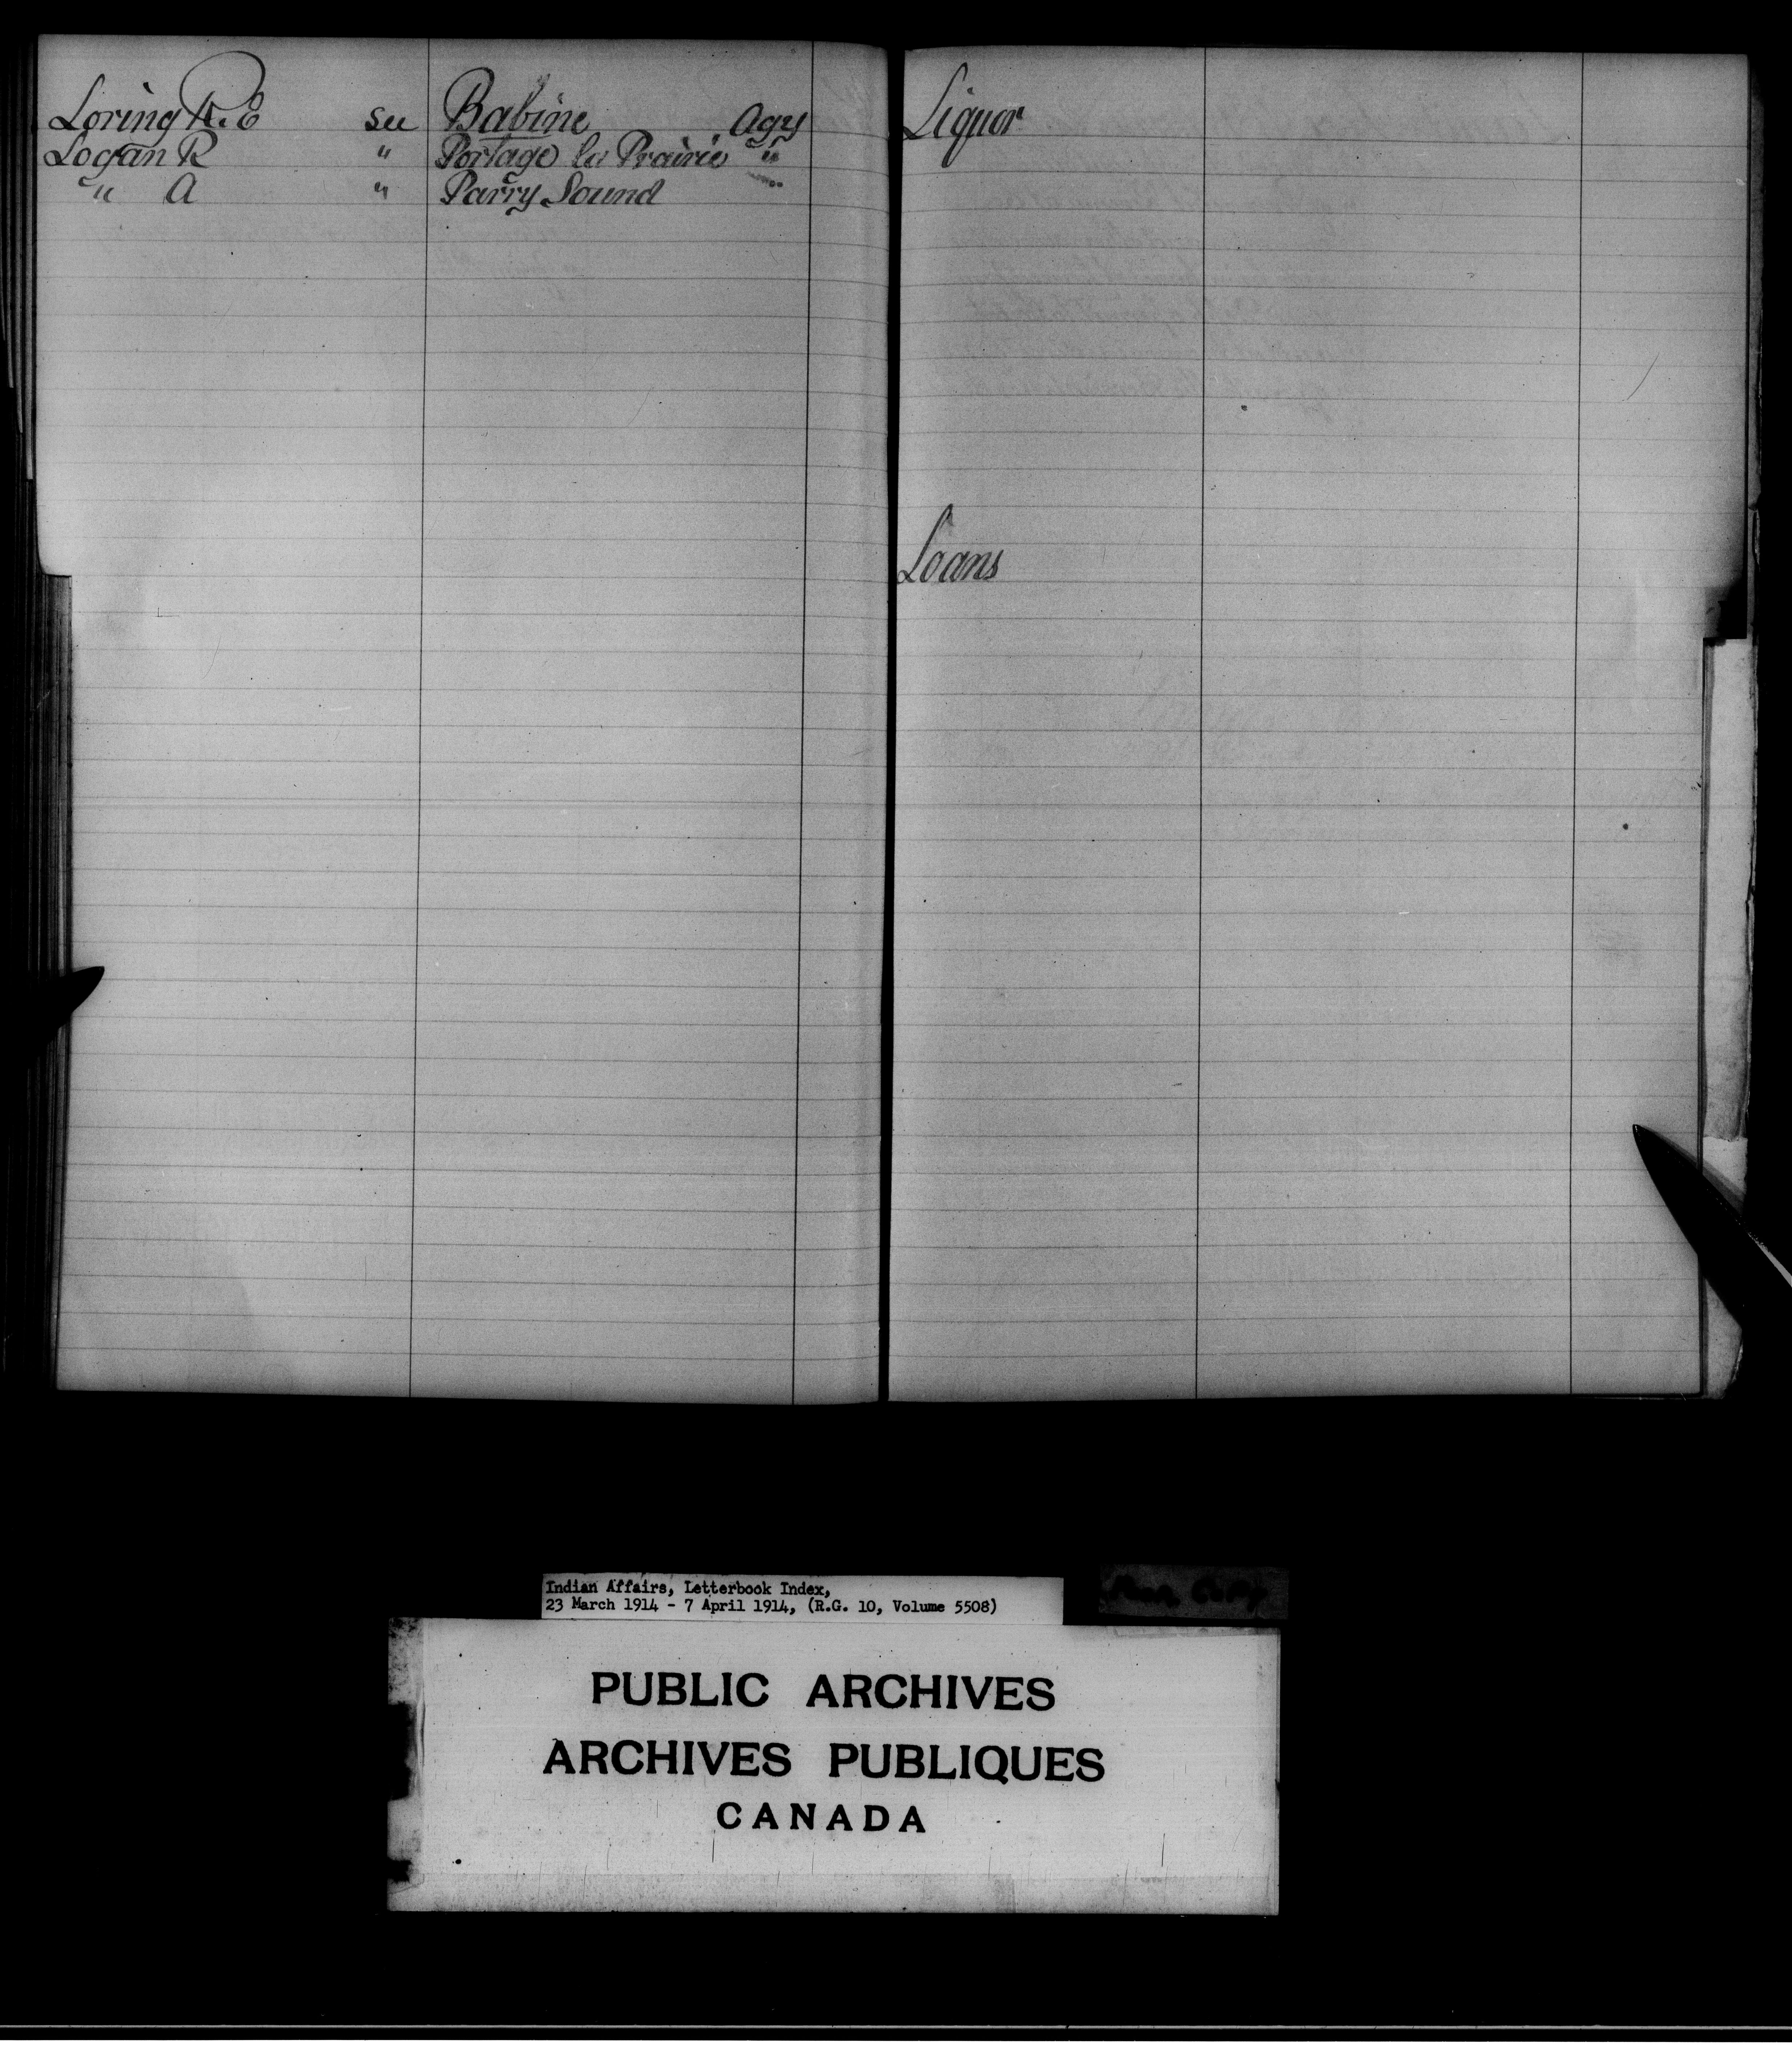 Loring R. E see Babine Agy
Logan R " Portage la Prairie "
" A " Parry Sound "
Liquor
Loans
Indian Affairs, Letterbook Index,
23 March 1914 - 7 April 1914, (R.G. 10, Volume 5508)
PUBLIC ARCHIVES
ARCHIVES PUBLIQUES
CANADA